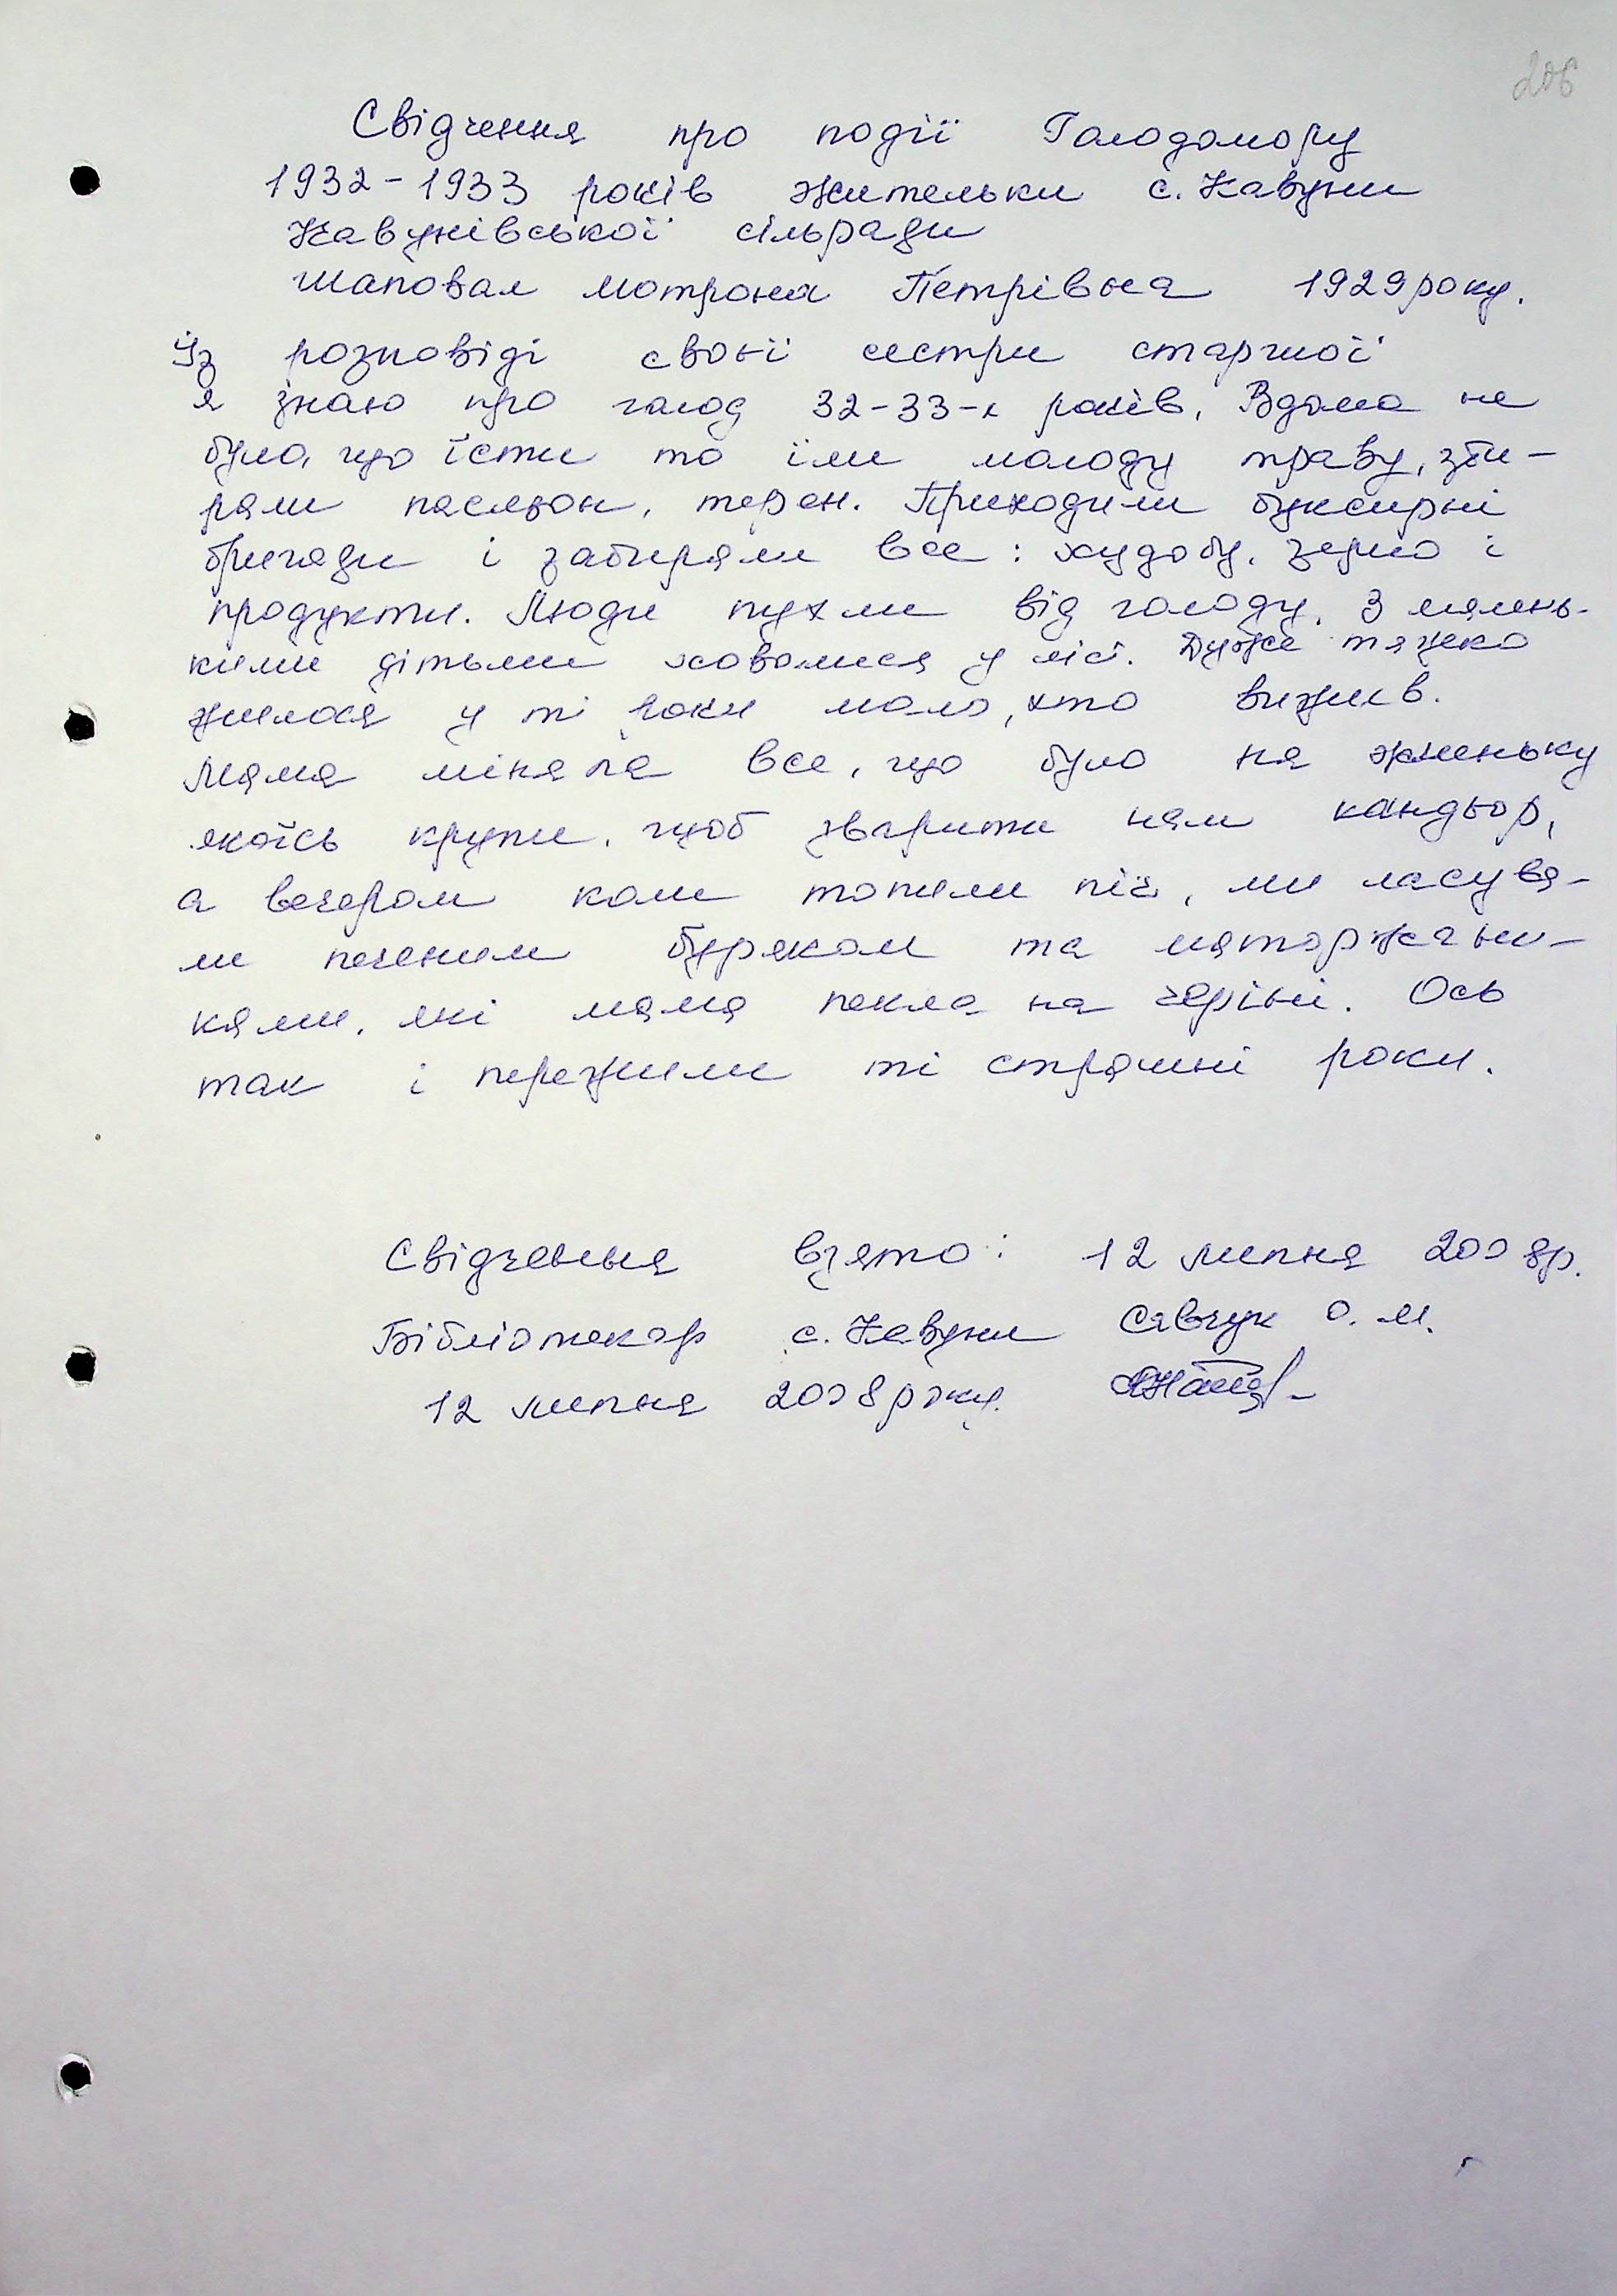 206
Свідчення про події Голодомору
1932-1933 років жительки с. Кавуни
Кавунівської сільради
Шаповал Мотрона Петрівна 1929 року.
Із розповіді своєї сестри старшої
я знаю про голод 32-33-х років. Вдома не
було, що їсти то їли молоду траву, зби-
рали пасльон, терен. Приходили буксирні
бригади і забирали все: худобу, зерно і
продукти. Люди пухли від голоду. З малень-
кими дітьми ховалися у лісі. Дуже тяжко
жилося у ті роки мало, хто вижив.
Мама міняла все, що було на жменьку
якоїсь крупи, щоб зварити нам кандьор,
а вечером коли топили піч, ми ласува-
ли печеним буряком та маторжани-
ками, які мама пекла на черіні. Ось
так і пережили ті страшні роки.
Свідчення взято: 12 липня 2008р.
Бібліотекар с. Кавуни Савчук О. М.
12 липня 2008 року.